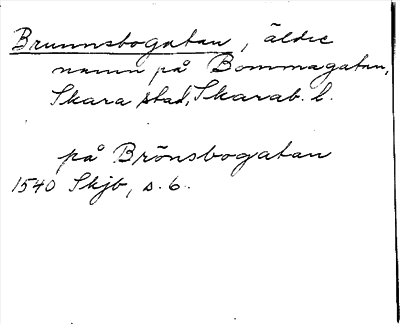 Brunnsbogatan, äldre
namn på Bommagatan,
Skara stad, Skarab. l.
på Brönsbogatan
1540 Skjb, s. 6.